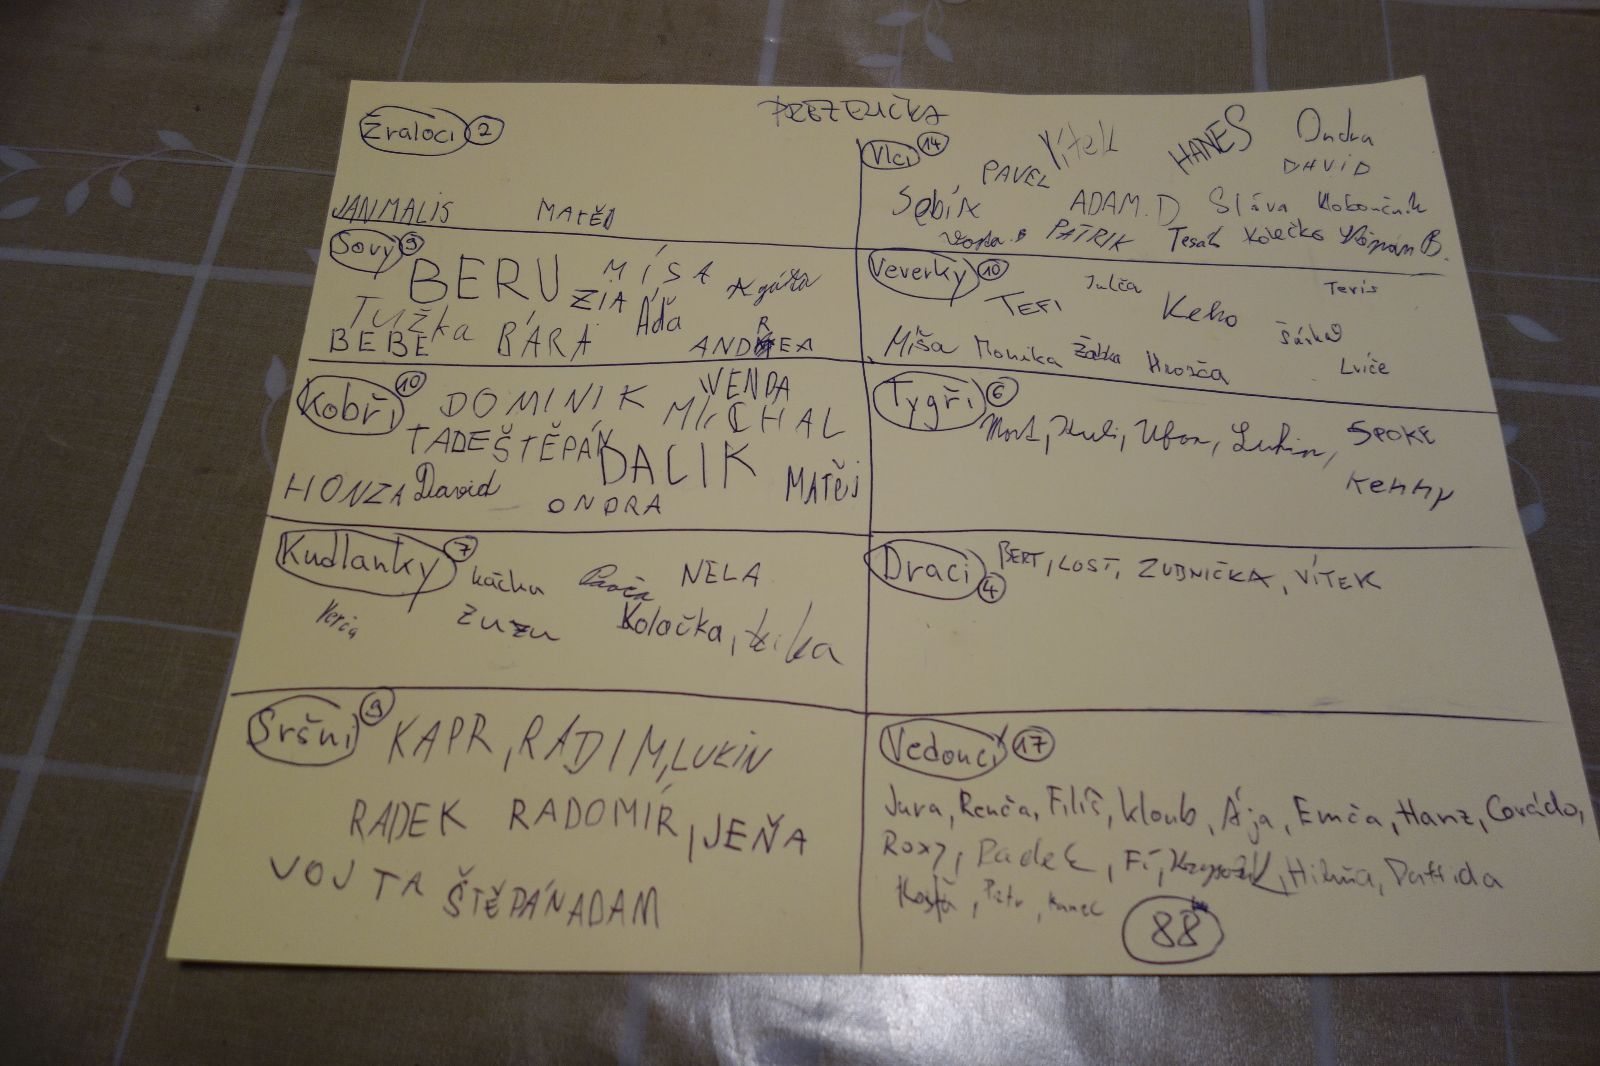 PREZENČKA
Žraloci 2
JAN MALIS MATĚJ
Vlci 14
PAVEL Vítek HANES Ondra
DAVID
Sobík ADAM.D Sláva Kobouček
Vojta.B PATRIK Tesař Kolečko Štěpán B.
Sovy 9
BERU MÍSA Agáta
ZIA
Tužka BÁRA Áďa
BEBE ANDREA
Veverky 10
TEFI Julča Keko Teris
Míša Monika Žabka Hrošča Šárka
Lviče
Kobři 10
DOMINIK VENDA
MICHAL
TADE ŠTĚPÁN DALIK MATĚJ
HONZA David ONDRA
Tygři 6
Mort, Kuli, Ufon, Lukin, SPOKE
KENNY
Kudlanky 7
káčka Pavča NELA
Verča ZUZU Koločka, kika
Draci 4
BERT, LOST, ZUBNIČKA, VÍTEK
Sršni 9
KAPR, RADIM, LUKIN
RADEK RADOMÍR, JEŇA
VOJTA ŠTĚPÁN ADAM
Vedoucí 17
Jura, Renča, Filiš, kloub, Ája, Emča, Hanz, Corrádo,
Roxy, Radek, Fí, Hikuňa, Daffida
Kosťa, Petr, Kanec
88